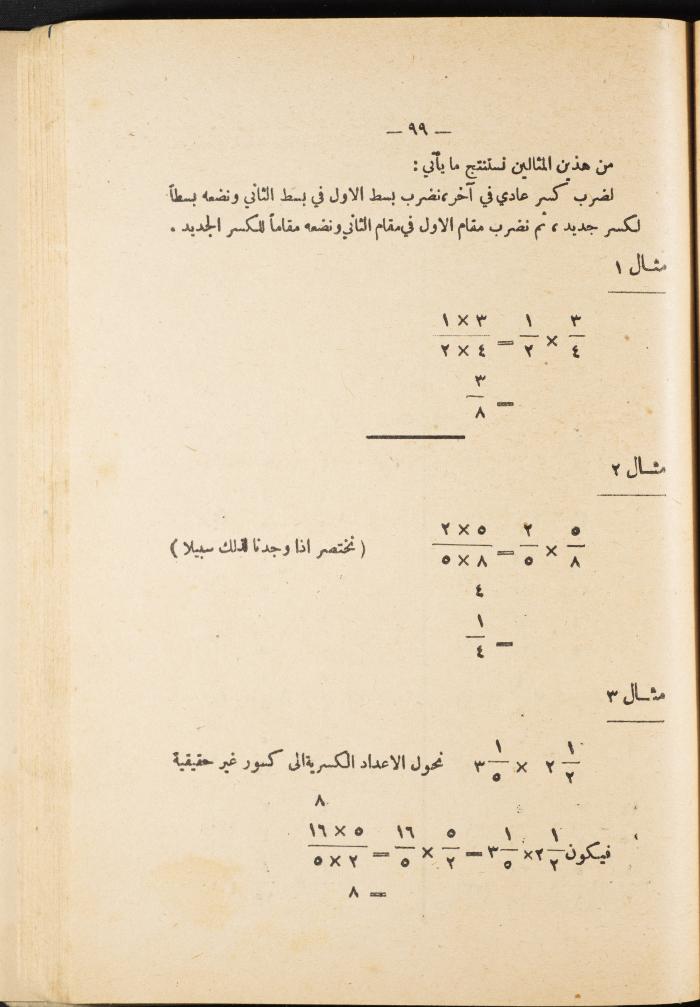 — ٩٩ —
من هذين المثالين نستنتج ما يأتي :
لضرب كسر عادي في آخر، نضرب بسط الاول في بسط الثاني ونضعه بسطاً
لكسر جديد ، ثم نضرب مقام الاول في مقام الثاني ونضعه مقاماً للكسر الجديد .
مثـال ١
٣/٤ × ١/٢ = ٣ × ١ / ٤ × ٢
= ٣/٨
مثـال ٢
٥/٨ × ٢/٥ = ٥ × ٢ / ٨ × ٥ ( نختصر اذا وجدنا لذلك سبيلا )
٤
= ١/٤
مثـال ٣
٢ ١/٢ × ٣ ١/٥ نحول الاعداد الكسرية الى كسور غير حقيقية
٨
فيكون ٢ ١/٢ × ٣ ١/٥ = ٥/٢ × ١٦/٥ = ٥ × ١٦ / ٢ × ٥
= ٨